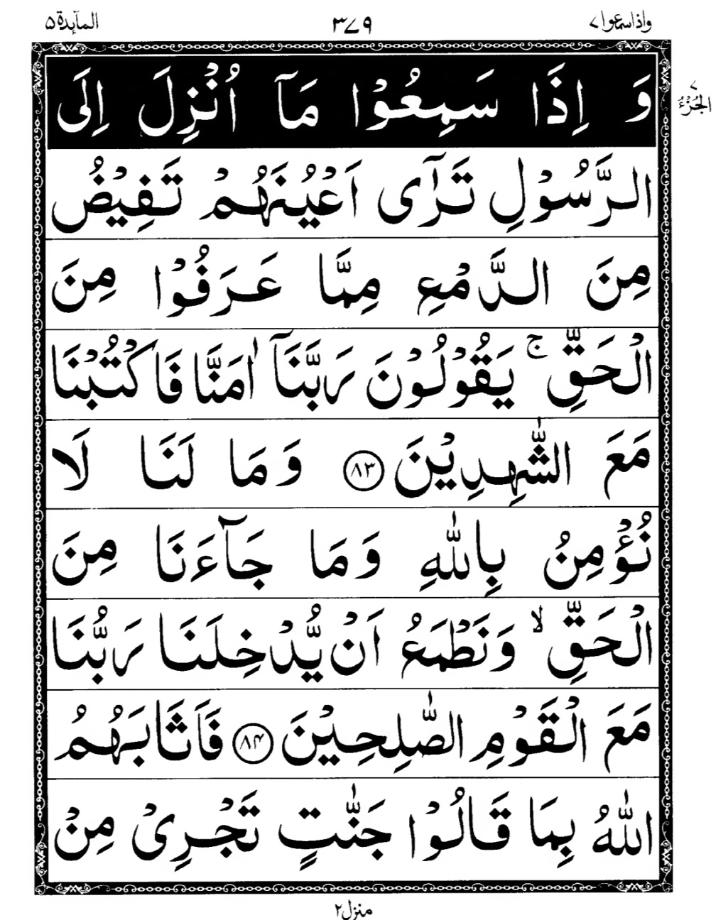 واذا سمعوا ٧ ٣٧٩ المآىِٕدة ٥
الجُزْءُ ٧
وَ اِذَا سَمِعُوْا مَاۤ اُنْزِلَ اِلَى
الرَّسُوْلِ تَرٰۤى اَعْيُنَهُمْ تَفِيْضُ
مِنَ الدَّمْعِ مِمَّا عَرَفُوْا مِنَ
الْحَقِّ ۚ يَقُوْلُوْنَ رَبَّنَاۤ اٰمَنَّا فَاكْتُبْنَا
مَعَ الشّٰهِدِيْنَ ﴿۸۳﴾ وَ مَا لَنَا لَا
نُؤْمِنُ بِاللّٰهِ وَ مَا جَآءَنَا مِنَ
الْحَقِّ ۙ وَ نَطْمَعُ اَنْ يُّدْخِلَنَا رَبُّنَا
مَعَ الْقَوْمِ الصّٰلِحِيْنَ ﴿۸۴﴾ فَاَثَابَهُمُ
اللّٰهُ بِمَا قَالُوْا جَنّٰتٍ تَجْرِيْ مِنْ
منزل ٢